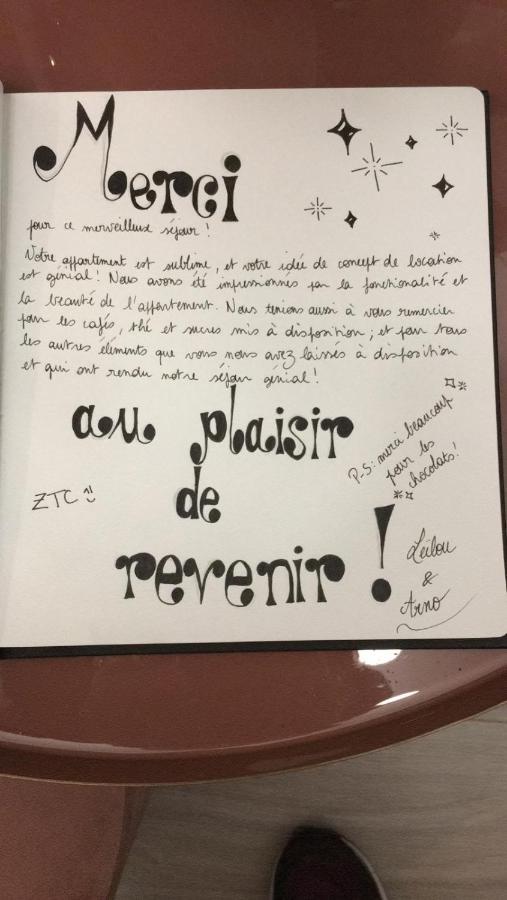 Merci
pour ce merveilleux séjour !
Votre appartement est sublime, et votre idée de concept de location
est génial ! Nous avons été impressionnés par la fonctionalité et
la beauté de l'appartement. Nous tenions aussi à vous remercier
pour les cafés, thé et sucres mis à disposition ; et pour tous
les autres éléments que vous nous avez laissés à disposition
et qui ont rendu notre séjour génial !
au plaisir
de
revenir !
P-S : merci beaucoup
pour les
chocolats !
ZTC
Leïlou
&
Arno